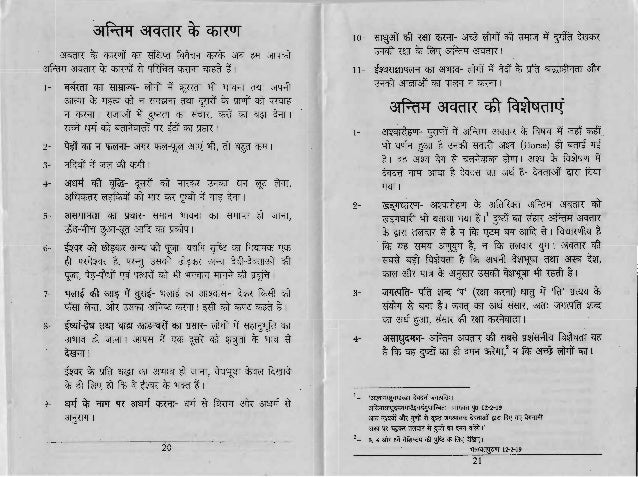 अन्तिम अवतार के कारण
अवतार के कारणों का संक्षिप्त विवेचन करके अब हम आपको
अन्तिम अवतार के कारणों से परिचित कराना चाहते हैं।
1- बर्बरता का साम्राज्य- लोगों में क्रूरता भी भावना तथा अपनी
आत्मा के महत्व को न समझना तथा दूसरों के प्राणों की परवाह
न करना। राजाओं में दुष्टता का संचार, करों का बढ़ा देना।
सच्चे धर्म को बतानेवालों पर ईंटों का प्रहार।
2- पेड़ों का न फलना- अगर फल-फूल आएं भी, तो बहुत कम।
3- नदियों में जल की कमी।
4- अधर्म की वृद्धि- दूसरों को मारकर उनका धन लूट लेना,
अधिकतर लड़कियों को मार कर पृथ्वी में गाड़ देना।
5- असमानता का प्रचार- समान भावना का समाप्त हो जाना,
ऊँच-नीच छुआ-छूत आदि का प्रकोप।
6- ईश्वर को छोड़कर अन्य की पूजा- यद्यपि सृष्टि का नियामक एक
ही परमेश्वर है, परन्तु उसको छोड़कर अन्य देवी-देवताओं की
पूजा, पेड़-पौधों एवं पत्थरों को भी भगवान मानने की प्रवृत्ति।
7- भलाई की आड़ में बुराई- भलाई का आश्वासन देकर किसी को
फँसा लेना, और उसका अनिष्ट करना। इसी को कपट कहते हैं।
8- ईर्ष्या-द्वेष तथा बाह्य आडम्बरों का प्रसार- लोगों में सहानुभूति का
अभाव हो जाना। आपस में एक दूसरे को शत्रुता के भाव से
देखना।
ईश्वर के प्रति श्रद्धा का अभाव हो जाना, वेशभूषा केवल दिखावे
के ही लिए हो कि वे ईश्वर के भक्त हैं।
9- धर्म के नाम पर अधर्म करना- धर्म से विराग और अधर्म से
अनुराग।
20
10 साधुओं की रक्षा करना- अच्छे लोगों की समाज में दुर्गति देखकर
उनकी रक्षा के लिए अन्तिम अवतार।
11- ईश्वराज्ञापालन का अभाव- लोगों में वेदों के प्रति श्रद्धाहीनता और
उनकी आज्ञाओं का पालन न करना।
अन्तिम अवतार की विशेषताएं
1- अश्वारोहण- पुराणों में अन्तिम अवतार के विषय में जहाँ कहीं
भी वर्णन हुआ है उनकी सवारी अश्व (Horse) ही बताई गई
है। वह अश्व वेग से चलनेवाला होगा। अश्व के विशेषण में
देवदत्त नाम आया है देवदत्त का अर्थ है- देवताओं द्वारा दिया
गया।
2- खड्गधारण- अश्वारोहण के अतिरिक्त अन्तिम अवतार को
खड्गधारी भी बताया गया है।¹ दुष्टों का संहार अन्तिम अवतार
के द्वारा तलवार से है न कि एटम बम आदि से। विचारणीय है
कि यह समय अणुयुग है, न कि तलवार युग। अवतार की
सबसे बड़ी विशेषता है कि अपनी वेशभूषा तथा अस्त्र देश,
काल और पात्र के अनुसार उसकी वेशभूषा भी रहती है।
3- जगत्पति- पति शब्द 'प' (रक्षा करना) धातु में 'ति' प्रत्यय के
संयोग से बना है। जगत् का अर्थ संसार, अतः जगत्पति शब्द
का अर्थ हुआ, संसार की रक्षा करनेवाला।
4- असाधुदमन- अन्तिम अवतार की सबसे प्रशंसनीय विशेषता यह
है कि वह दुष्टों का ही दमन करेगा,² न कि अच्छे लोगों का।
12-2-19
भागवतपुराण 12-2-19
21